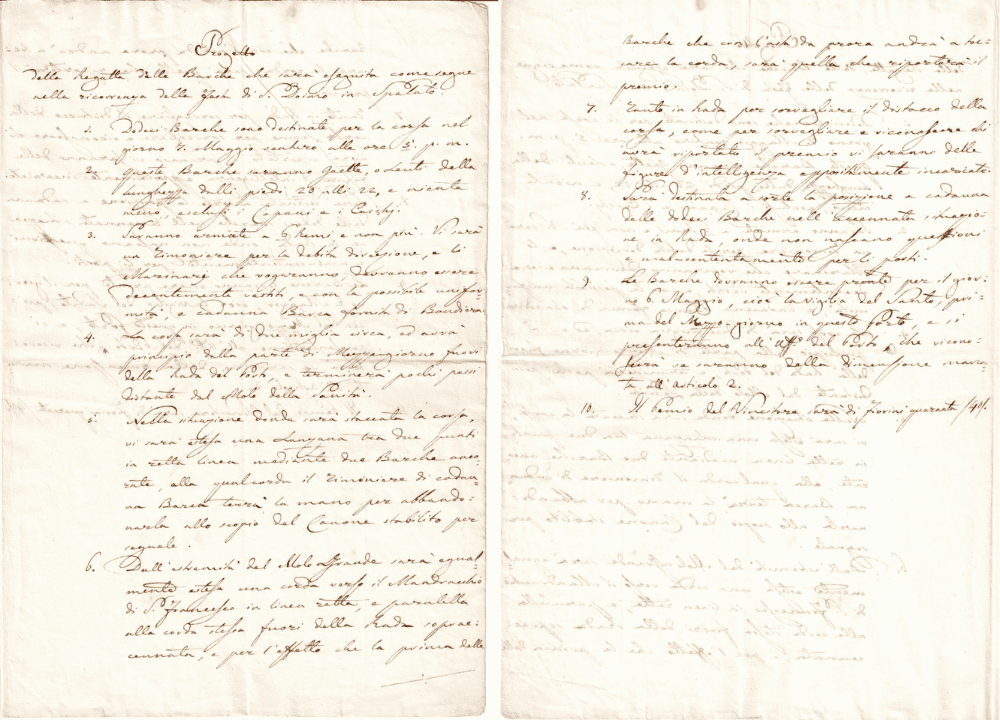 Progetto
della Regatta delle Barche che sarà eseguita come segue
nella ricorrenza della festa di S. Doimo in Spalato.
1. Dodeci Barche sono destinate per la corsa nel
giorno 7. Maggio venturo alle ore 5. p. m.
2. Queste Barche saranno Gaette, o Leuti della
lunghezza dalli piedi 20 alli 22, e niente
meno, esclusi i
3. Saranno armate a 6 Remi e non più. Vi sarà
un Timoniere per la debita direzione, e li
Marinari che vogueranno, dovranno essere
decentemente vestiti, e con la possibile unifor-
mità, e cadauna Barca fornita di Bandiera.
4. La corsa sarà di due miglia circa, ed avrà
principio dalla parte di Mezzogiorno fuori
della Rada del Porto, e terminerà pochi passi
distante dal Molo della Sanità.
5. Nella situazione donde sarà staccata la corsa,
vi sarà estesa una Lanzana tra due punti
in retta linea mediante due Barche anco-
rate, alla qual corda il Timoniere di cadau-
na Barca terrà la mano per abbando-
narla allo scopio del Canone stabilito per
segnale.
6. Dall'estremità del Molo Grande sarà egual-
mente estesa una corda verso il Mandracchio
di S. Francesco in linea retta, e paralella
alla corda stessa fuori della Rada soprac-
cennata, e per l'effetto che la prima delle
Barche che con l'asta da prora andrà a toc-
care la corda, sarà quella che riporterà il
premio.
7. Tanto in Rada per sorvegliare il distacco della
corsa, come per sorvegliare e riconoscere chi
avrà riportato il premio vi saranno delle
figure d'intelligenza appositamente incaricate.
8. Sarà destinata a sorte la posizione a cadauna
delle dodeci Barche nell'accennata situazio-
ne in Rada, onde non nascano questioni
e malcontentamenti per li posti.
9. Le Barche dovranno essere pronte per il gior-
no 6. Maggio, cioè la vigilia del Santo, pri-
ma del Mezzo-giorno in questo Porto, e si
presenteranno all'Uffo del Porto, che ricono-
scerà se saranno della dimensione marca-
ta all'articolo 2.
10. Il Premio del Vincitore sarà di fiorini quaranta /40/.